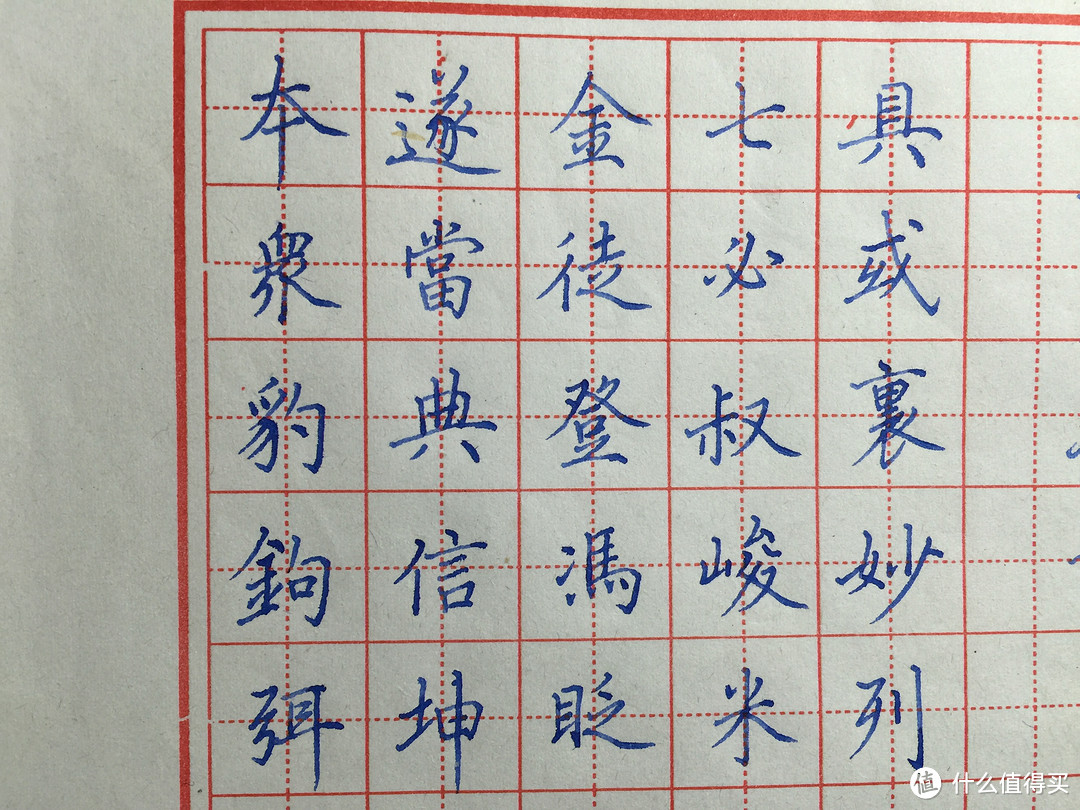 本遂金七具
眾當徒必或
豹典登叔裏
鉤信馮峻妙
弭坤眨米列
值 什么值得买